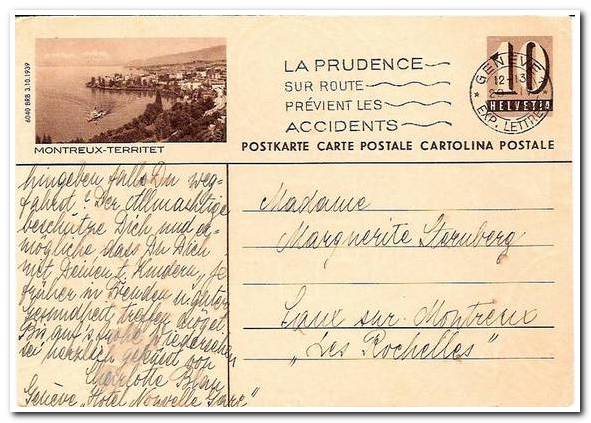 6040 BRB 3.10.1939
MONTREUX-TERRITET
LA PRUDENCE
SUR ROUTE
PRÉVIENT LES
ACCIDENTS
GENÈVE
12-13
EXP. LETTRES
10
HELVETIA
POSTKARTE CARTE POSTALE CARTOLINA POSTALE
hingeben falls Du weg-
fährst! Der Allmächtige
beschütze Dich und er-
mögliche dass Du Dich
mit Deinen l. Kindern, je
früher in Freuden u. guter
Gesundheit treffen mögest.
Bis auf's Wiedersehen
sei herzlich geküsst von
Charlotte Blau
Genève "Hotel Nouvelle Gare"
Madame
Marguerite Sternberg
sur Montreux
"Les Rochelles"